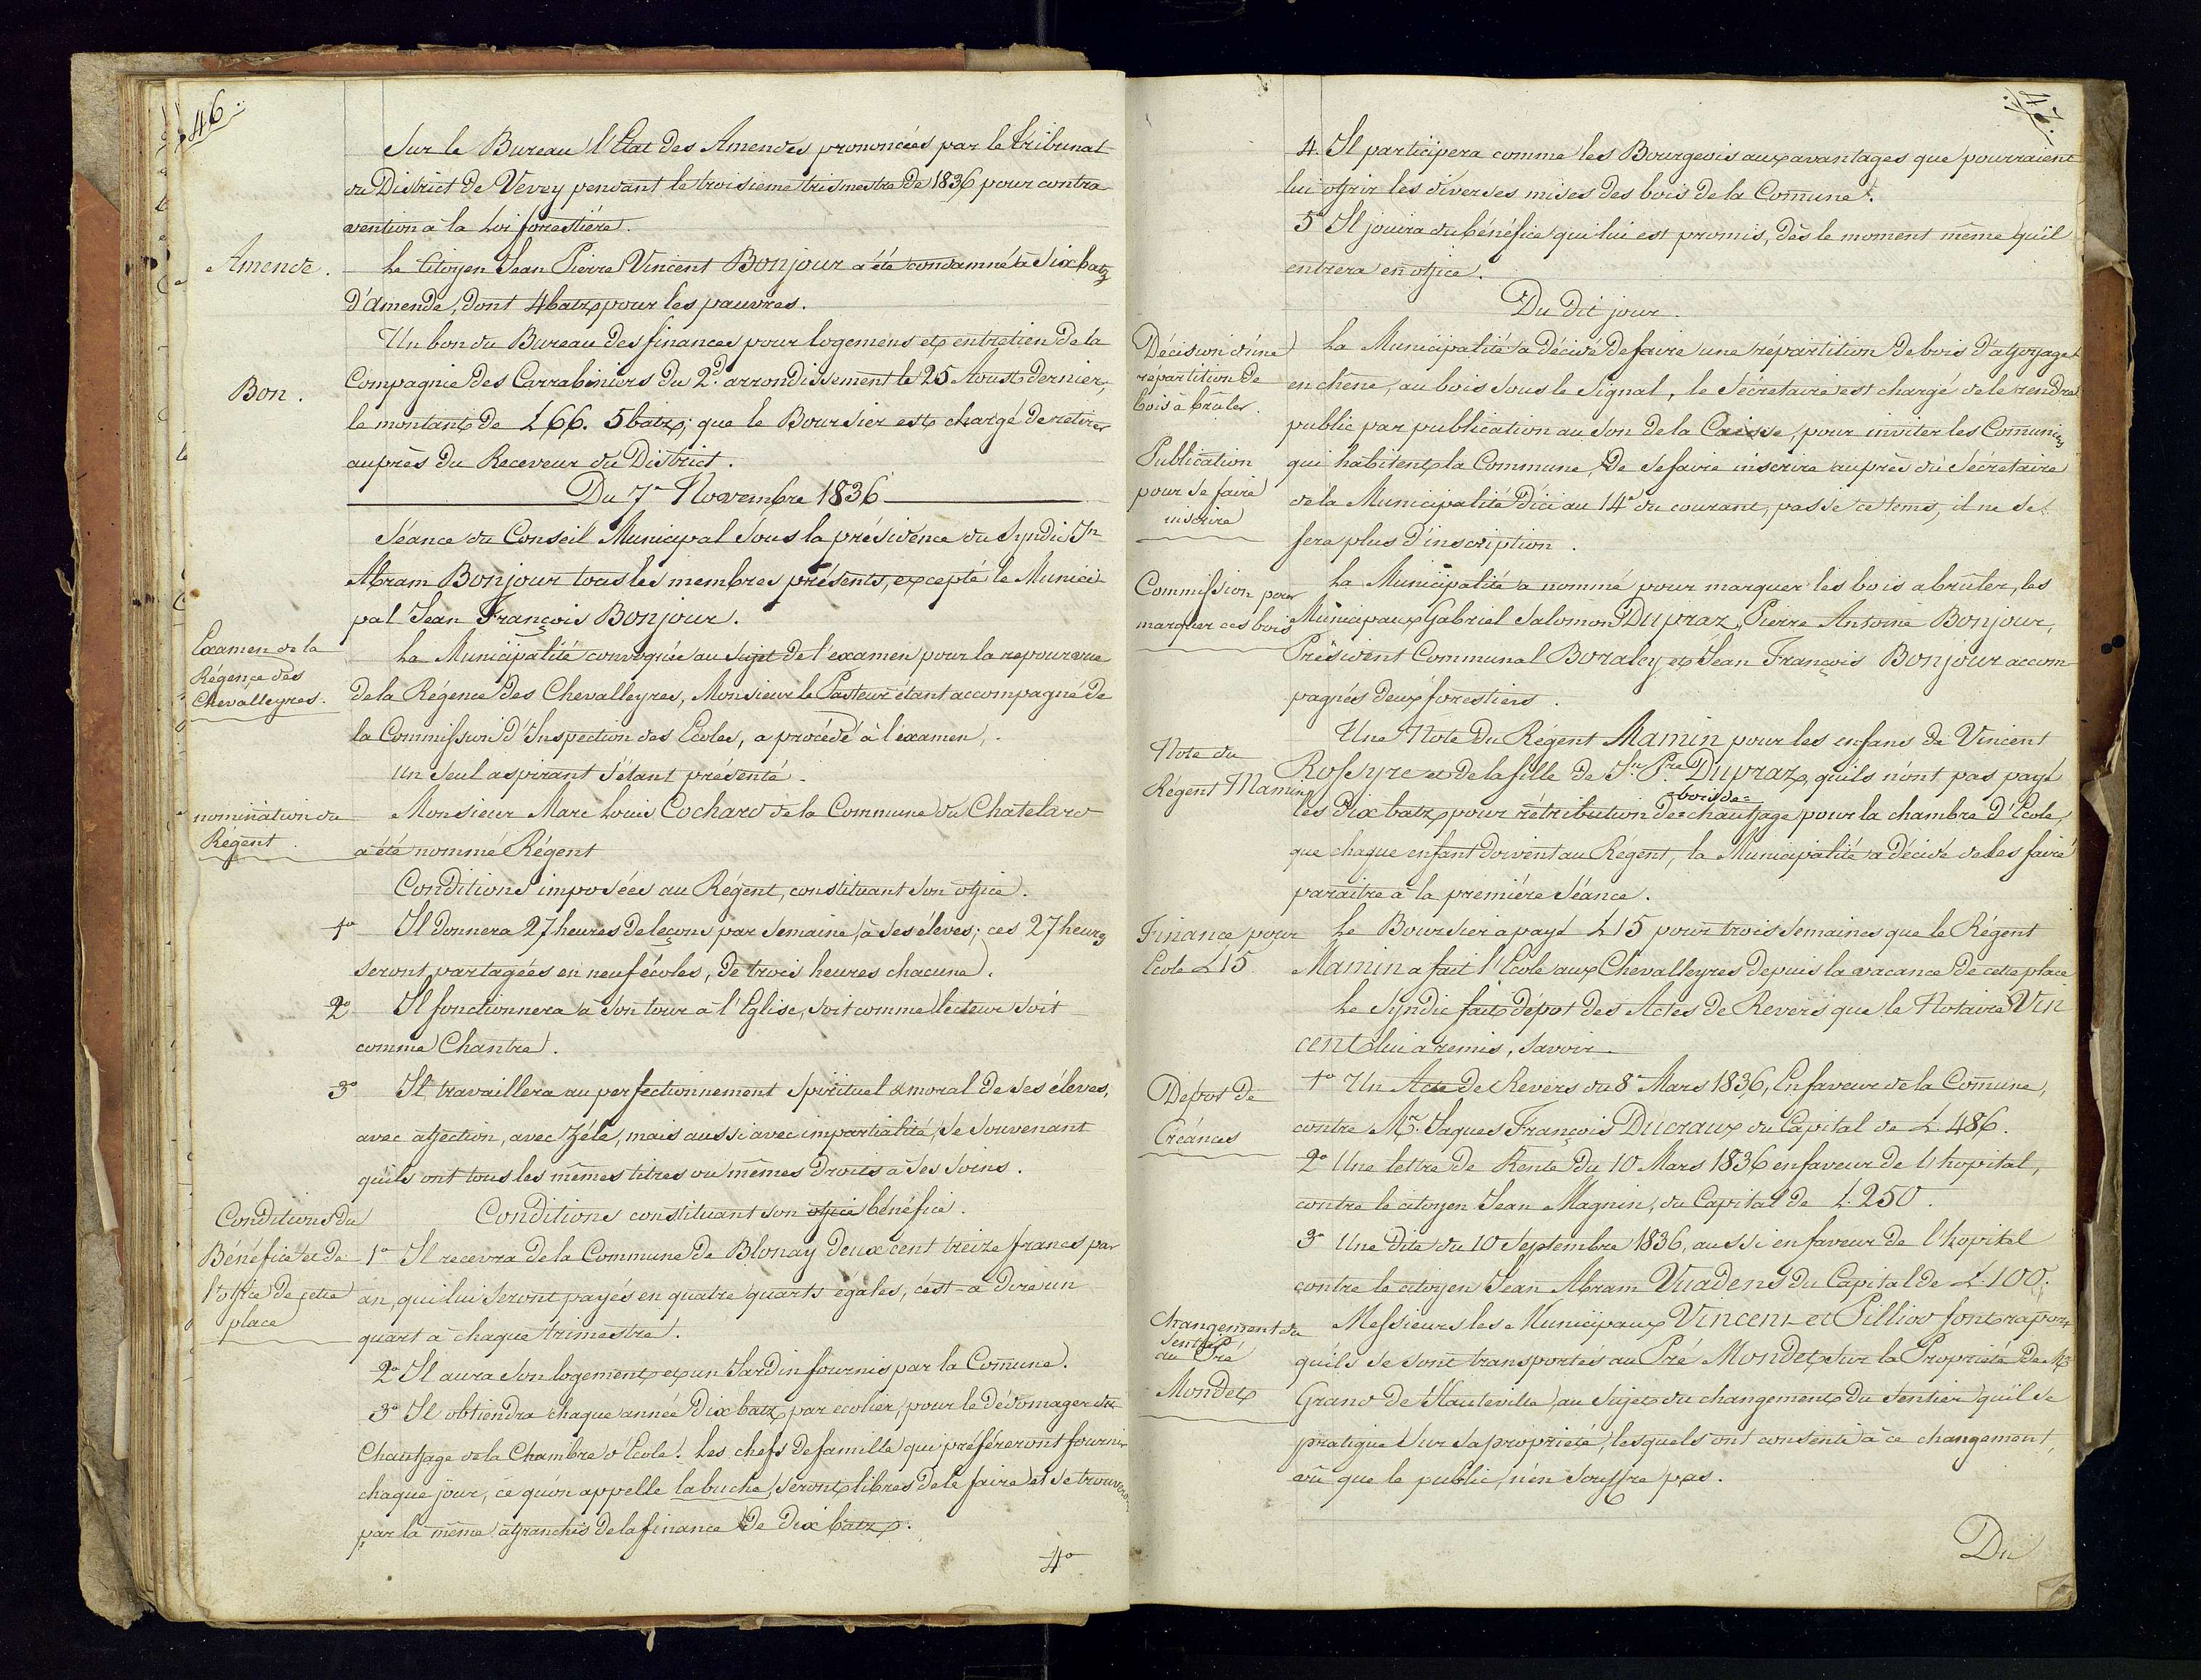 46.
Sur le Bureau l'Etat des Amendes prononcées par le Tribunal
du District de Vevey pendant le troisieme trismestre de 1836 pour contra
vention à la Loi forestière.
Amende.
Le Citoyen Jean Pierre Vincent Bonjour a été condamné à Six batz
d'Amende, dont 4 batz pour les pauvres.
Bon.
Un bon du Bureau des finances pour logemens et entretien de la
Compagnie des Carrabiniers du 2d. arrondissement le 25 Aoust dernier,
le montant de £ 66. 5 batz; que le Boursier est chargé de retirer
auprès du Receveur du District.
Du 7e Novembre 1836
Séance du Conseil Municipal sous la présidence du Syndic Jn
Abram Bonjour tous les membres présents, excepté le Munici
pal Jean François Bonjour.
Examen de la
Régence des
Chevalleyres.
La Municipalité convoquée au sujet de l'examen pour la repourvue
de la Régence des Chevalleyres, Monsieur le Pasteur étant accompagné de
la Commission d'Inspection des Ecoles, a procédé à l'éxamen,
un seul aspirant s'étant présenté.
nomination du
Régent.
Monsieur Marc Louis Cochard de la Commune du Chatelard
a été nommé Régent
Conditions imposées au Régent, constituant son office.
1o Il donnera 27 heures de leçons par semaine, à ses éleves; ces 27 heures
seront partagées en neuf écoles, de trois heures chacune.
2o Il fonctionnera à son tour à l'Eglise, soit comme lecteur soit
comme Chantre.
3o Il travaillera au perfectionnement spirituel & moral de ses éleves,
avec affection, avec zéle, mais aussi avec impartialité, se souvenant
qu'ils ont tous les mêmes titres ou mêmes droits à ses soins.
Conditions du
Bénéfice et de
l'office de cette
place
Conditions constituant son office bénéfice.
1o Il recevra de la Commune de Blonay deux cent treize francs par
an, qui lui seront payés en quatre quarts égales, c'est-à dire un
quart à chaque trimestre.
2o Il aura son logement et un Jardin fournis par la Commune.
3o Il obtiendra chaque année Dix batz par ecolier, pour le dédomager du
Chauffage de la Chambre d'Ecole. Les chefs de famille qui préféreront fournir
chaque jour, ce qu'on appelle la buche, seront libres de le faire et se trouveront
par là même affranchis de la finance de Dix batz.
4o
47.
4. Il participera comme les Bourgeois aux avantages que pourraient
lui offrir les diverses mises des bois de la Commune.
5o Il jouira du bénéfice qui lui est promis, dès le moment même qu'il
entrera en office.
Du dit jour.
Décision d'une
répartition de
bois à brûler.
La Municipalité a décidé de faire une répartition de bois d'affoyage
en chêne, au bois sous le Signal, le Sécretaire est chargé de le rendre
public par publication au son de la Caisse, pour inviter les Communiers
Publication
pour se faire
inscrire
qui habitent la Commune, de se faire inscrire auprès du Sécretaire
de la Municipalité d'ici au 14e du courant, passé ce tems, il ne se
fera plus d'inscription.
Commission pour
marquer ces bois
La Municipalité a nommé pour marquer les bois a brûler, les
Municipaux Gabriel Salomon Dupraz, Pierre Antoine Bonjour,
Président Communal Boraley et Jean François Bonjour accom
pagnés deux forestiers.
Note du
Régent Mamin
Une Note du Régent Mamin pour les enfans de Vincent
Rossyre et de la fille de Jn Pre Dupraz, qu'ils n'ont pas payé
les Dix batz pour rétribution de = bois de = chauffage pour la chambre d'Ecole,
que chaque enfant doivent au Régent, la Municipalité a décidé de les faire
paraitre à la premiére séance.
Finance pour
Ecole £ 15.
Le Boursier a payé £ 15 pour trois semaines que le Régent
Mamin a fait l'Ecole aux Chevalleyres depuis la vacance de cette place
Le Syndic fait dépot des Actes de Revers que le Notaire Vin
cent lui a remis, savoir
Depos de
Créances
1o Un Acte de Revers du 8e Mars 1836, En faveur de la Commune,
contre Mr. Jaques François Ducraux du Capital de £. 486.
2o Une lettre de Rente du 10 Mars 1836 en faveur de l'hopital,
contre le citoyen Jean Magnin, du Capital de £. 250.
3o Une dite du 10 Séptembre 1836, aussi en faveur de l'hopital
contre le citoyen Jean Abram Vuadens du Capital de £. 100.
Changement du
Sentier
au Pré
Mondet
Messieurs les Municipaux Vincent et Pilliod font raport
qu'ils se sont transportés au Pré Mondet sur la Propriété de Mr
Grand de Hauteville, au sujet du changement du Sentier qu'il se
pratique sur sa propriété, lesquels ont consenti à ce changement,
vû que le public n'en souffre pas.
Du